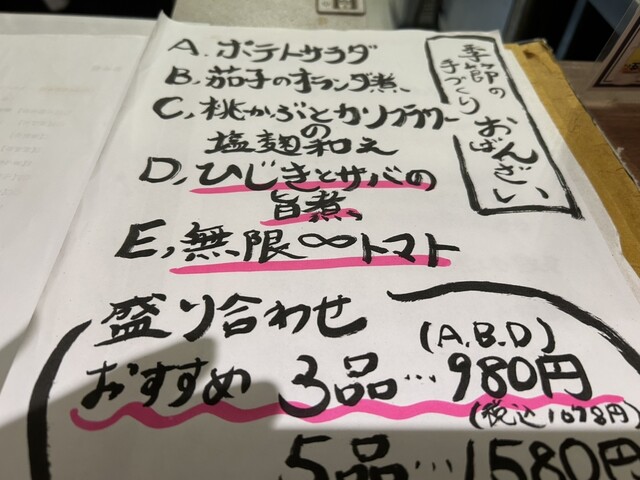 季節の
手づくり
おばんざい
A. ポテトサラダ
B. 茄子のオランダ煮
C, 桃かぶとカリフラワーの
塩麹和え
D, ひじきとサバの
旨煮
E, 無限∞トマト
盛り合わせ
(A.B.D)
おすすめ 3品…980円
(税込1078円)
5品…1580円